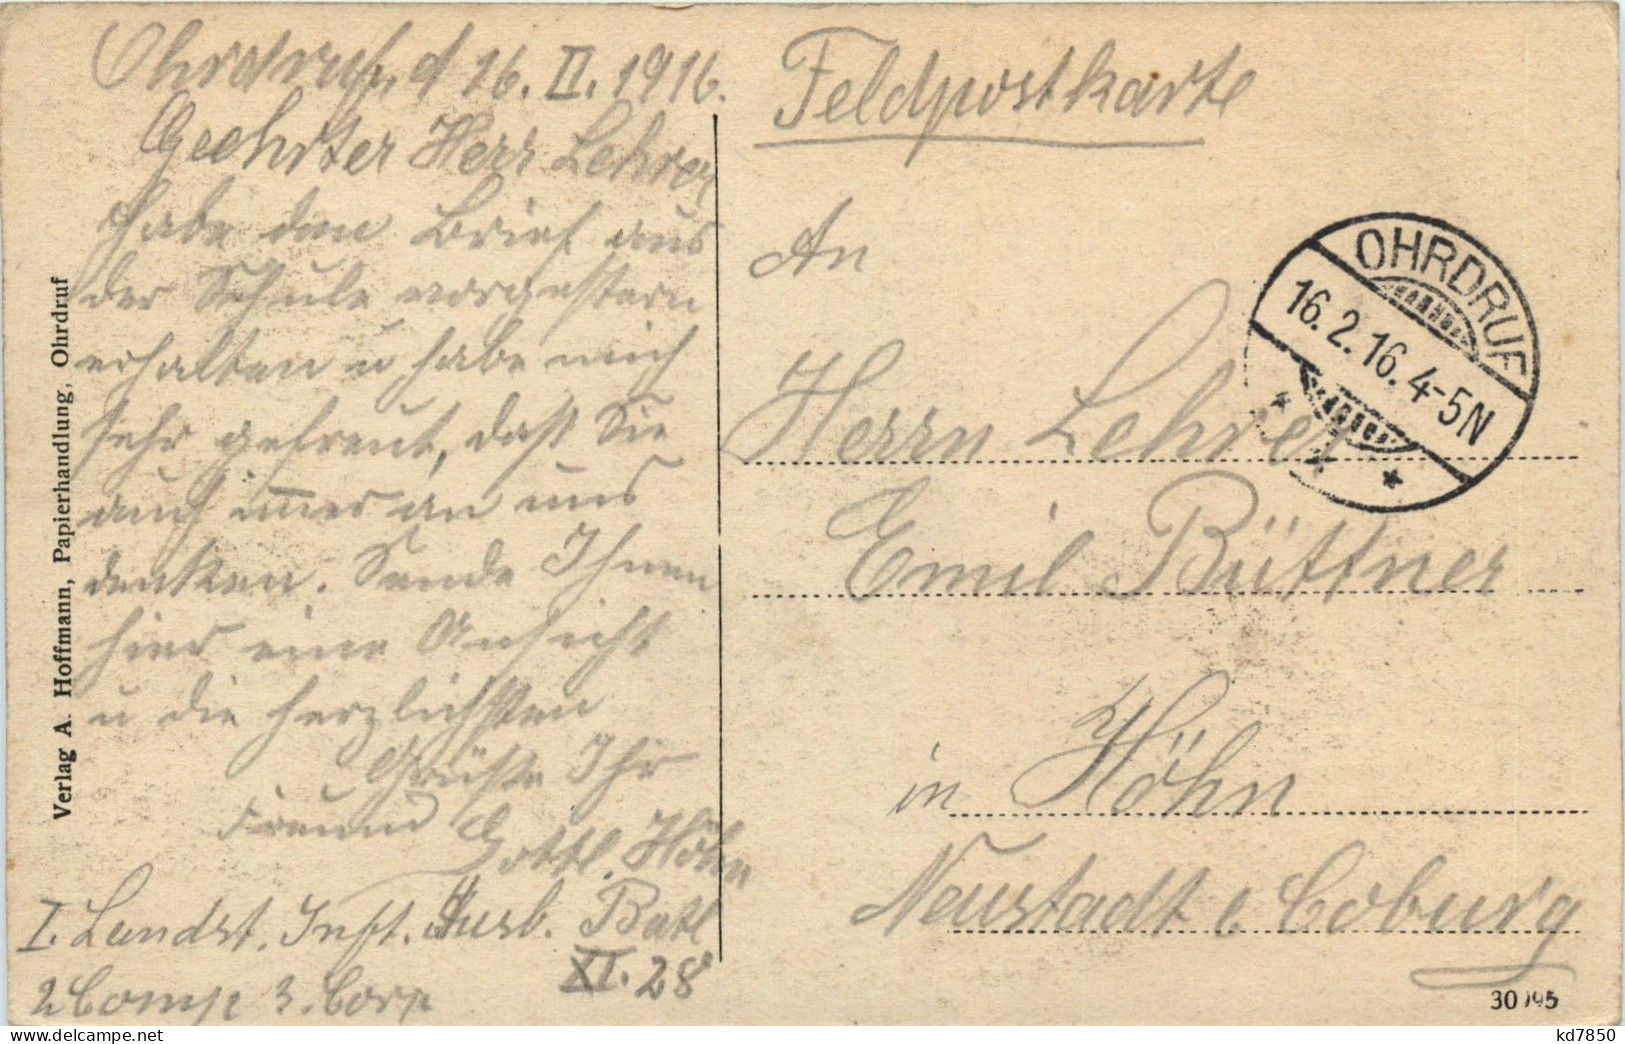 Ohrdruf, d 16. II. 1916.
Geehrter Herr Lehrer
habe den Brief aus
der Schule vorgestern
erhalten u habe mich
sehr gefreut, daß Sie
auch immer an uns
denken. Sende Ihnen
hier eine Ansicht
u die herzlichsten
Grüße Ihr
Freund
Gottl. Höhn
I. Landst. Inft. Ausb. Batl
XI. 28
2 Comp 3. Corp
Feldpostkarte
An
Herrn Lehrer
Emil Büttner
in Höhn
Neustadt b Coburg
OHRDRUF
16.2.16.4-5N
Verlag A. Hoffmann, Papierhandlung, Ohrdruf
kd7850